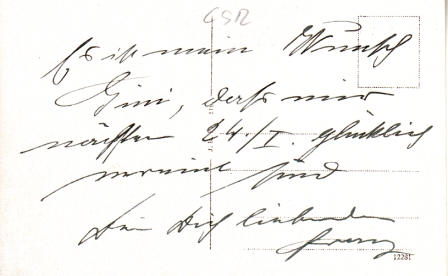 ČSR
Es ist mein Wunsch
Gini, dass wir
nächsten 24./I. glücklich
vereint sind
Dein Dich liebender
Franz
12281